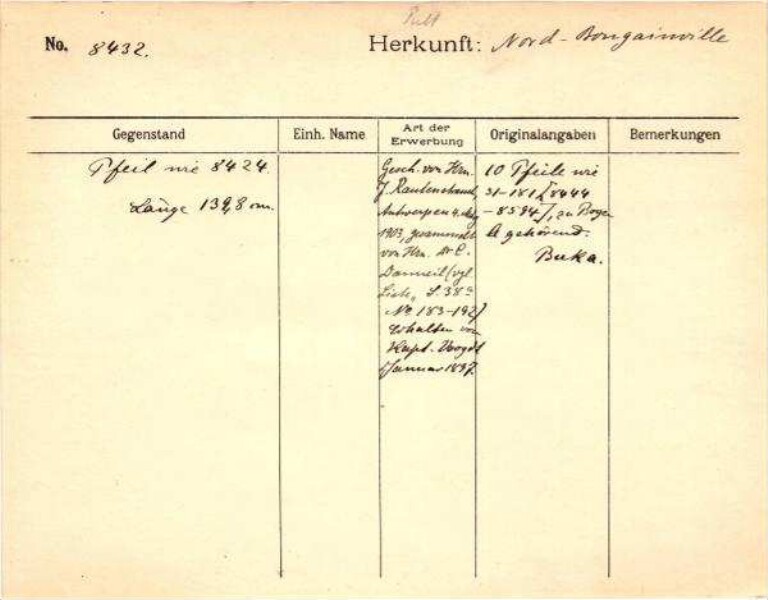 No. 8432. Herkunft: Nord-Bougainville
Gegenstand Einh. Name Art der Erwerbung Originalangaben Bemerkungen
Pfeil wie 8424.
Länge 139,8 cm.
Gesch. von Hrn.
J. Rautenstrauch,
Antwerpen 4. Aug.
1903, gesammelt
von Hrn. Dr C.
Danneil (vgl.
Liste, S. 38a
No 183-192)
Erhalten von
Kapt. Voogdt
Januar 1897.
10 Pfeile wie
31-181 [8444
-8594], zu Bogen
A gehörend.
Buka.